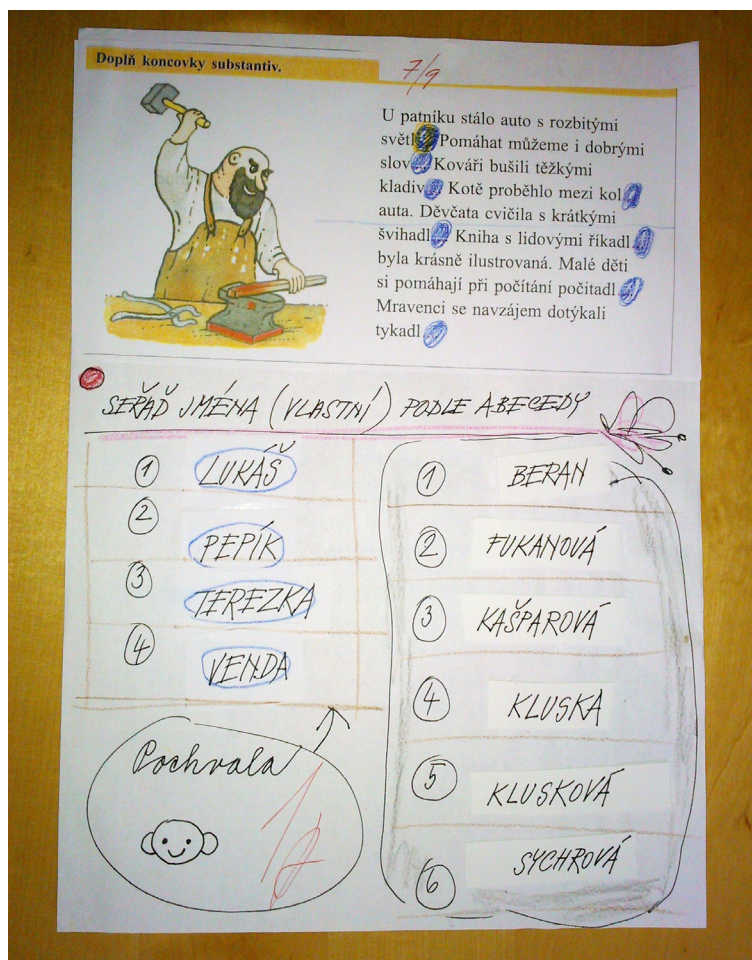 Doplň koncovky substantiv.
7/9
U patníku stálo auto s rozbitými
světl Pomáhat můžeme i dobrými
slov Kováři bušili těžkými
kladiv Kotě proběhlo mezi kol
auta. Děvčata cvičila s krátkými
švihadl Kniha s lidovými říkadl
byla krásně ilustrovaná. Malé děti
si pomáhají při počítání počitadl
Mravenci se navzájem dotýkali
tykadl
SEŘAĎ JMÉNA (VLASTNÍ) PODLE ABECEDY
1 LUKÁŠ
2 PEPÍK
3 TEREZKA
4 VENDA
Pochvala
1 BERAN
2 FUKANOVÁ
3 KAŠPAROVÁ
4 KLUSKA
5 KLUSKOVÁ
6 SYCHROVÁ